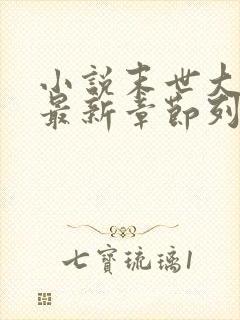 小說末世大
最新章節列
七寶琉璃1